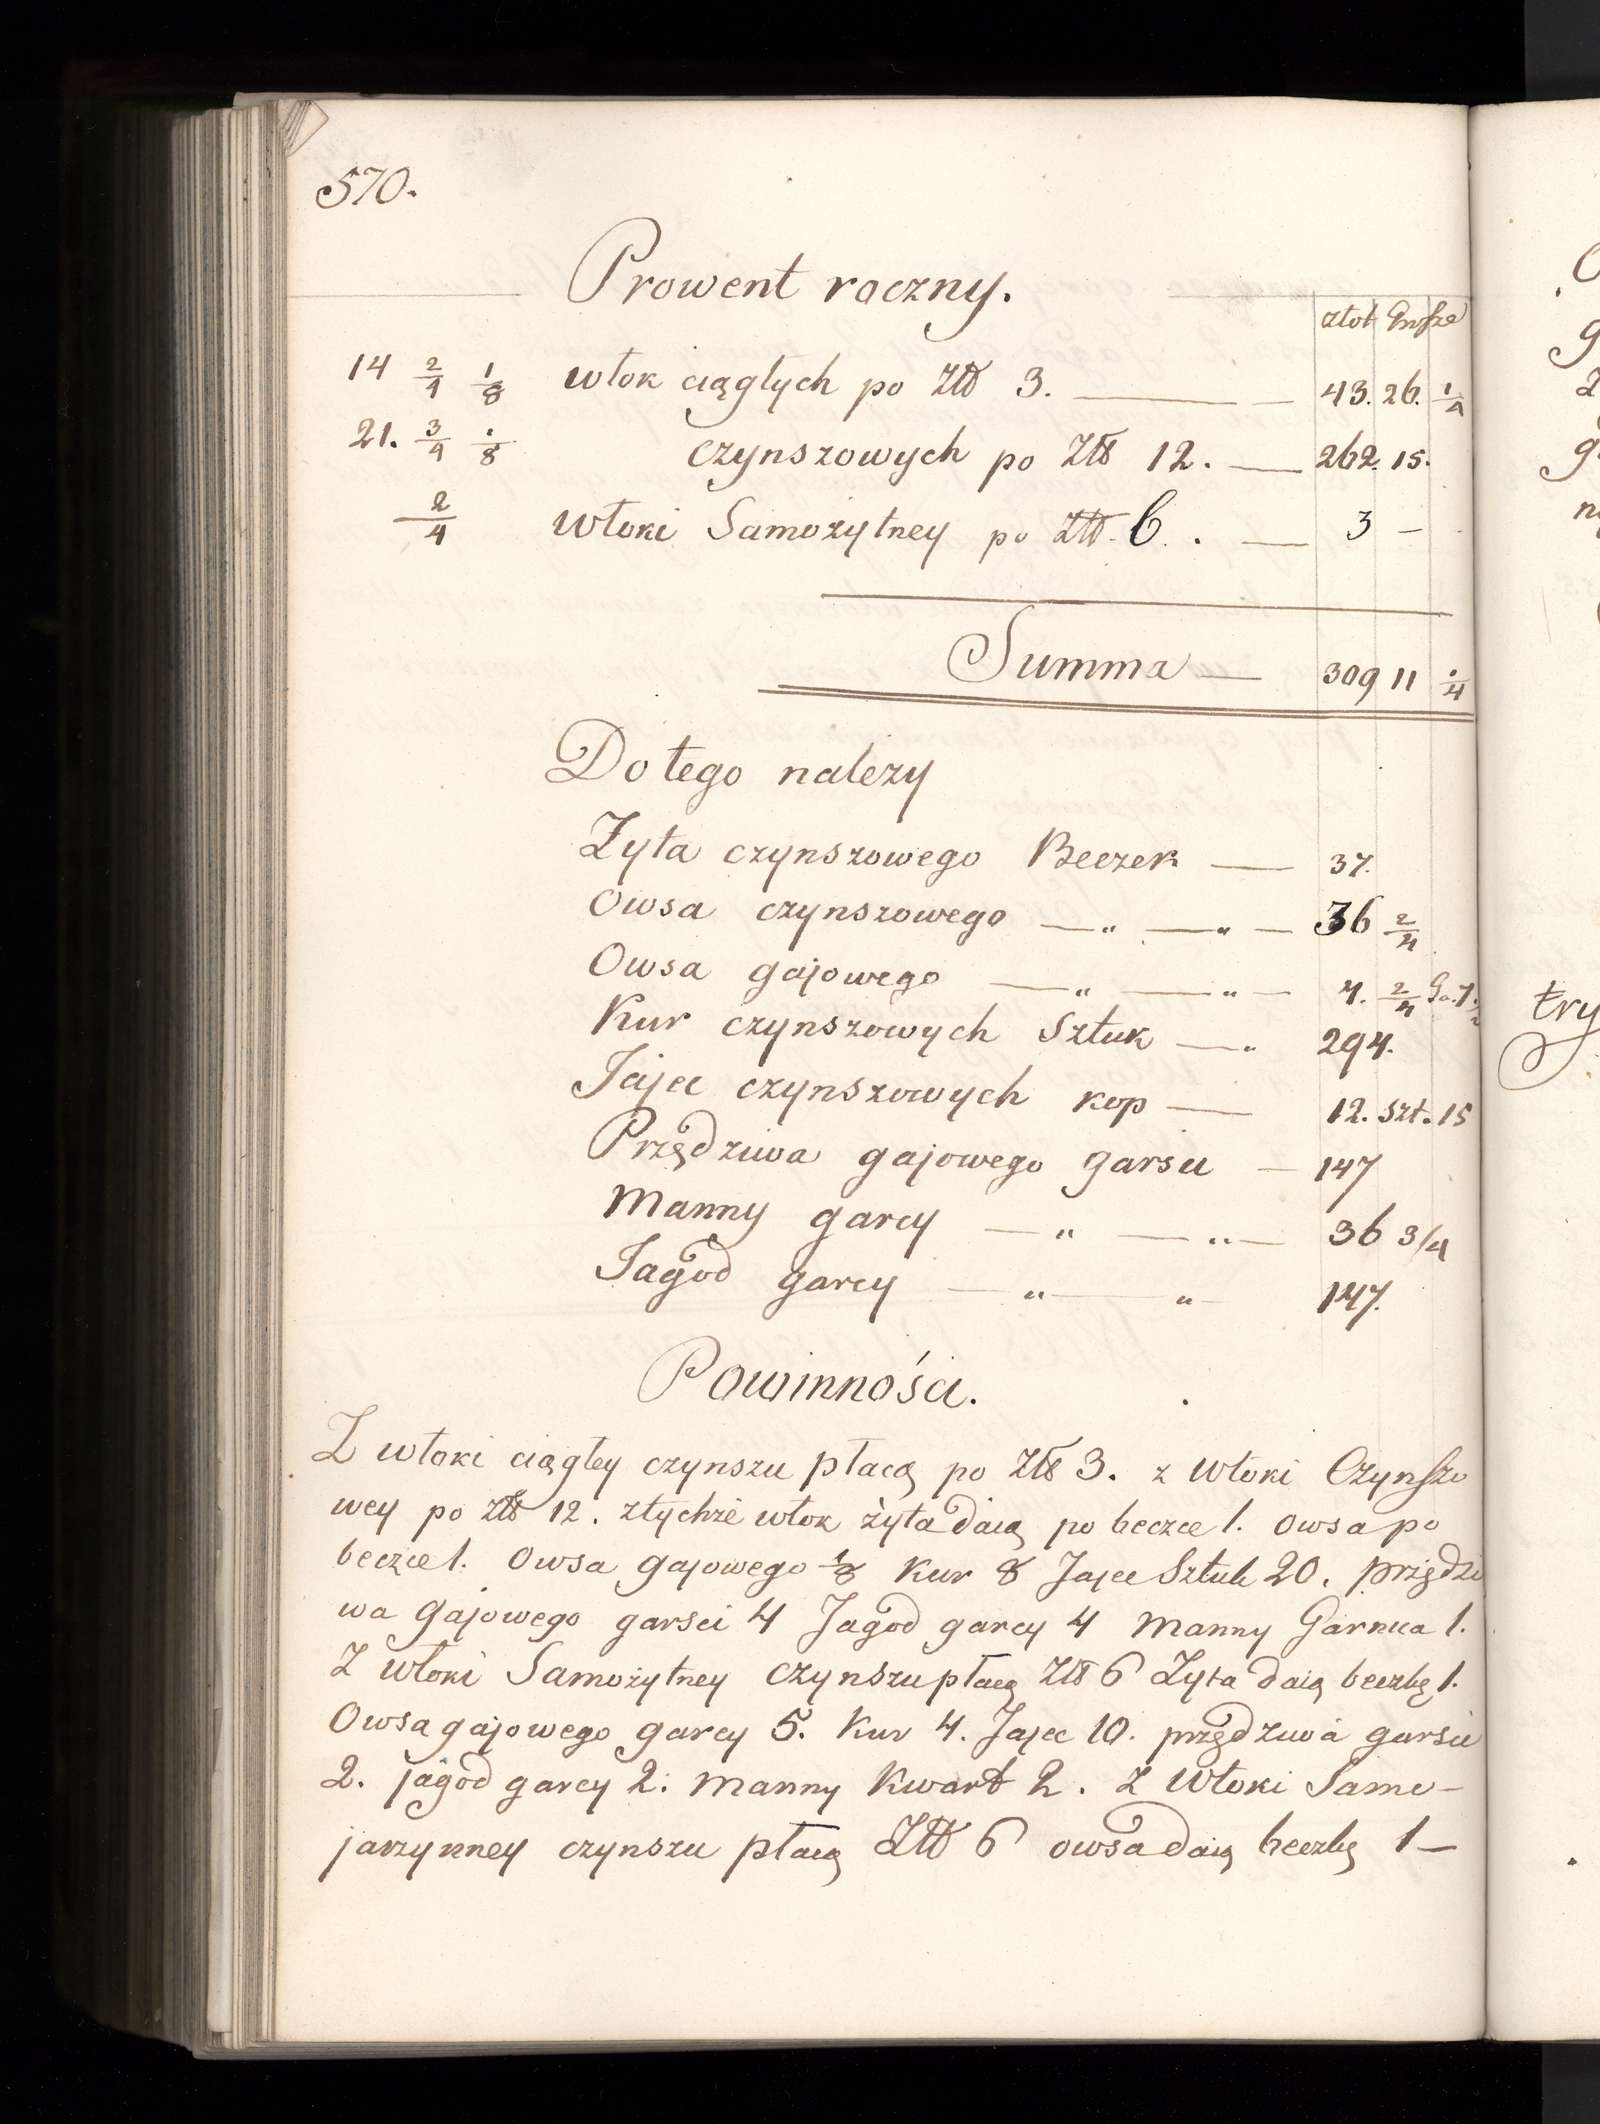 570.
Prowent roczny.
złot Grosze
14 2/4 1/8 włok ciągłych po Złł 3. — — 43. 26. 1/4
21. 3/4 1/8 czynszowych po Złł 12. — 262. 15.
2/4 włoki Samożytney po Złł. 6. . — 3 —
Summa — 309 11 1/4
Do tego nalezy
Żyta czynszowego Beczek — 37.
Owsa czynszowego —„ —„ — 36 2/4
Owsa gajowego —„ —„ — 4. 2/4 Ga. 7.
Kur czynszowych Sztuk —„ 294.
Jajec czynszowych kop — 12. szt. 15
Przędziwa gajowego garści — 147
Manny garcy —„ —„— 36 3/4
Jagod garcy —„— „— 147.
Powinności.
Z włoki ciągłey czynszu płacą po Złł 3. z włoki Czynszo
wey po złł 12. z tychże włok żyta daią po beczce 1. owsa po
beczce 1. Owsa gajowego 1/8 Kur 8 Jajec Sztuk 20. przędzi
wa Gajowego garści 4 Jagod garcy 4 Manny Garnca 1.
Z włoki Samożytney czynszu płacą Złł 6 Żyta daią beczkę 1.
Owsa gajowego garcy 5. Kur 4. Jajec 10. przędziwa garści
2. jagod garcy 2. manny Kwart 2. Z Włoki Samo-
jarzynney czynszu płacą Złł 6 owsa daią beczkę 1 —
try